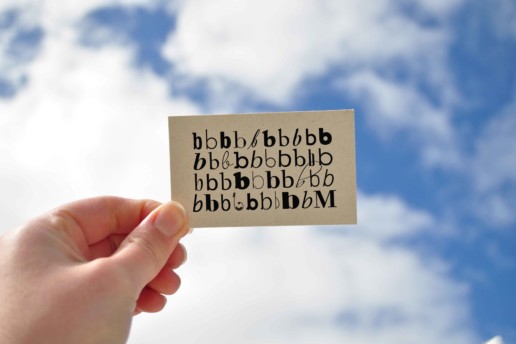 bbbbbbbbbb
bbbbbbbbbb
bbbbbbbbbb
bbbbbbbbbM